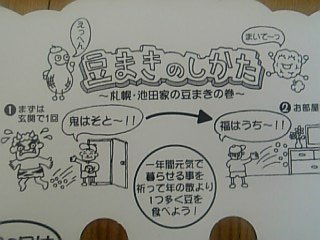 えっへん
まいて〜っ
豆まきのしかた
〜札幌・池田家の豆まきの巻〜
❶まずは
玄関で1回
鬼はそと〜!!
❷お部屋
福はうち〜!!
一年間元気で
暮らせる事を
祈って年の数より
1つ多く豆を
食べよう!